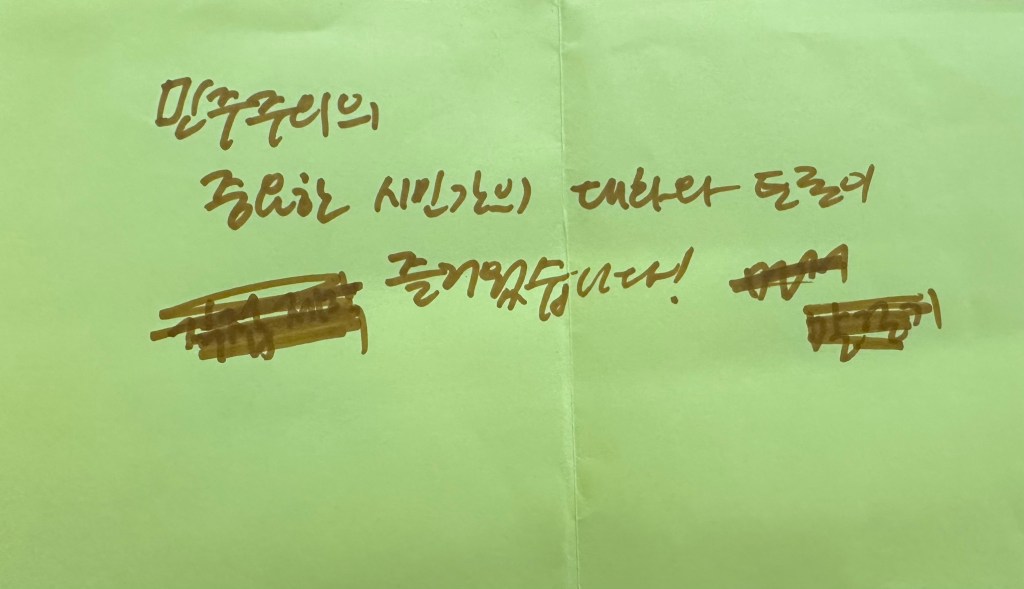 민주주의의
중요한 시민간의 대화와 토론이
즐거웠습니다!